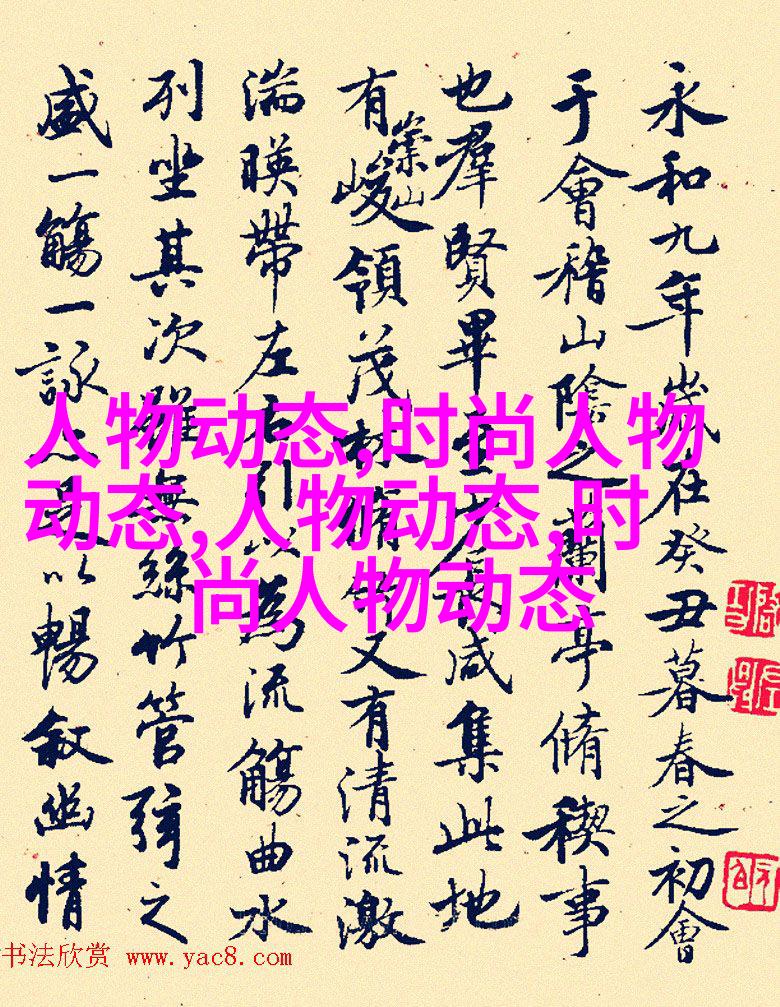 永和九年歲在癸丑暮春之初會
于會稽山陰之蘭亭脩稧事
也羣賢畢至少長咸集此地
有崇山峻領茂林脩竹又有清流激
湍暎帶左右引以為流觴曲水
列坐其次雖無絲竹管弦之
盛一觴一詠亦足以暢敘幽情
人物动态,时尚人物
动态,人物动态,时
尚人物动态
书法欣赏 www.yac8.com